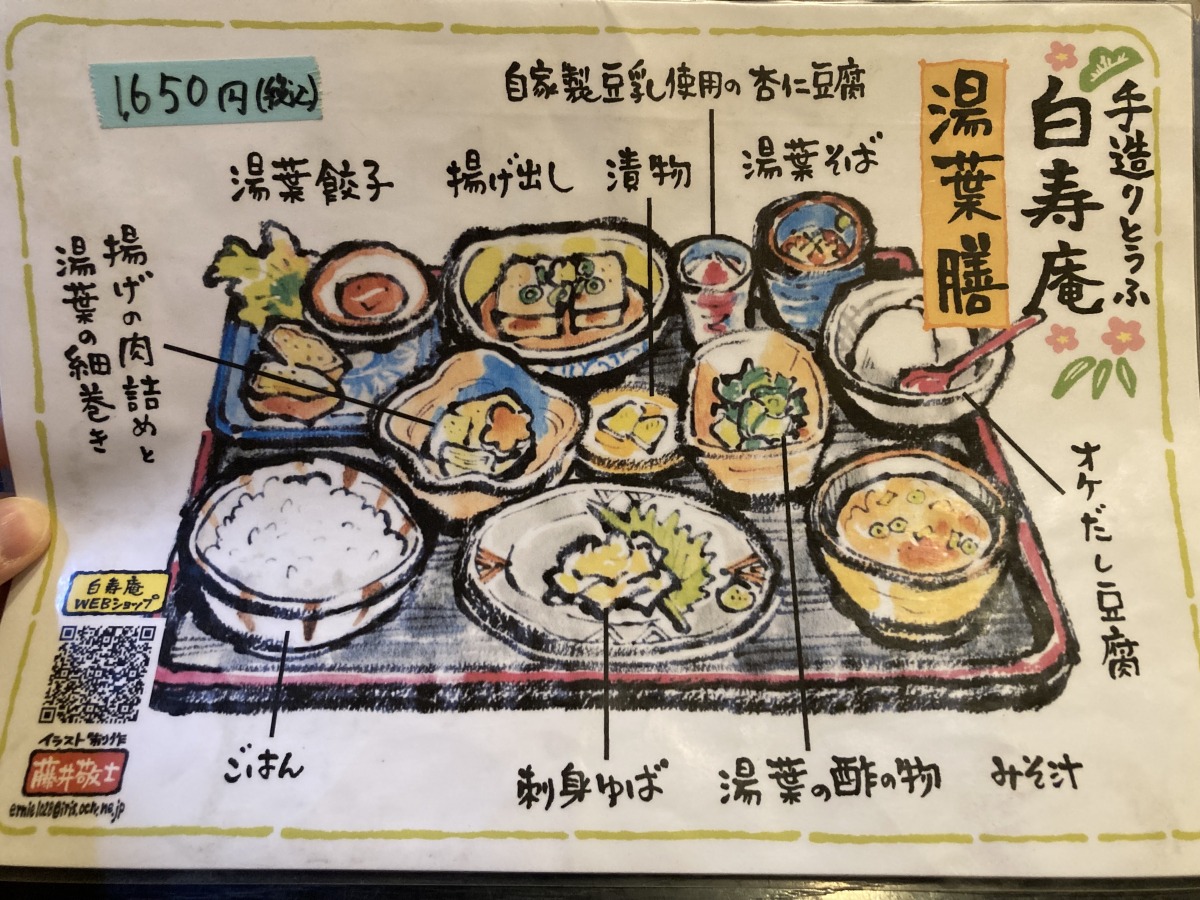 手造りとうふ
白寿庵
湯葉膳
1,650円(税込)
自家製豆乳使用の杏仁豆腐
湯葉餃子
揚げ出し
漬物
湯葉そば
揚げの肉詰めと
湯葉の細巻き
オケだし豆腐
白寿庵
WEBショップ
イラスト制作
藤井敬士
ごはん
刺身ゆば
湯葉の酢の物
みそ汁